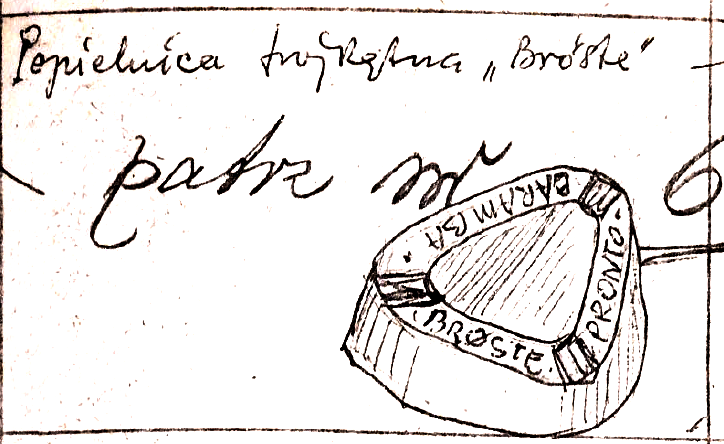 Popielnica trójkątna „Brøste" –
patrz nr 6
CARAMBA
PRONTO
BRØSTE